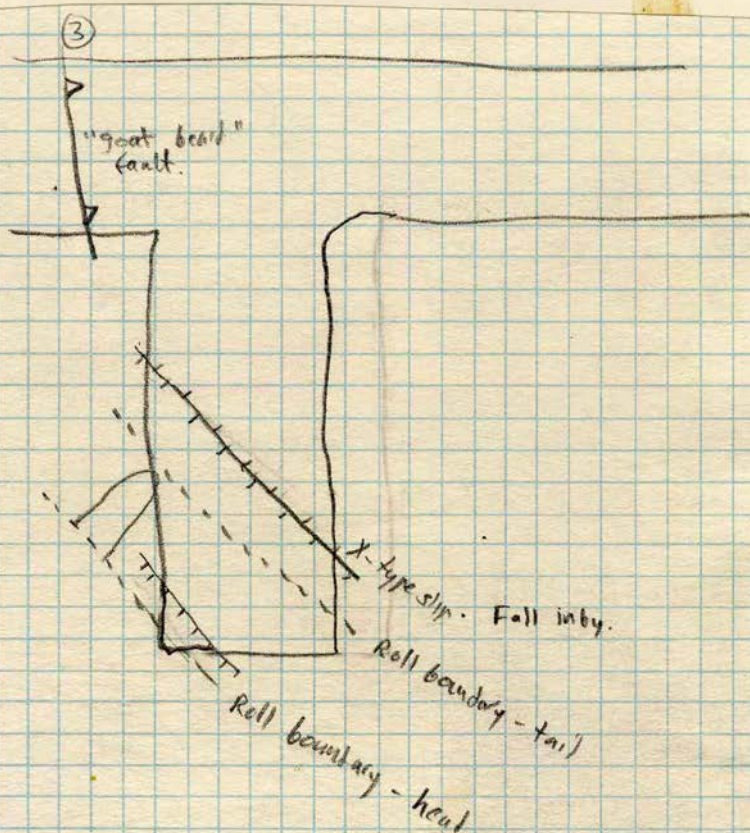 ③
"goat beard"
fault.
X-type slip. Fall inby.
Roll boundary - tail
Roll boundary - head